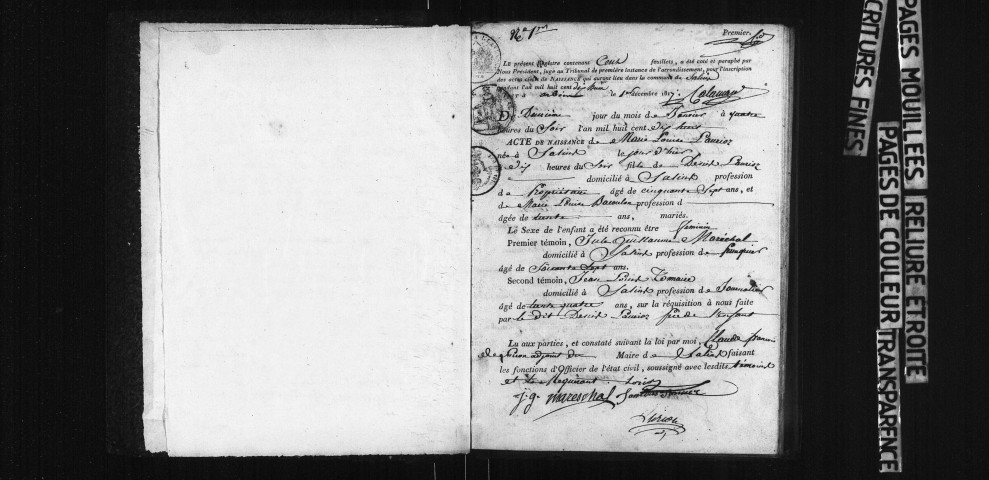 N.º 1.er
Premier.
LE présent registre contenant Cent feuillets, a été coté et paraphé par
Nous Président, juge au Tribunal de première instance de l'arrondissement, pour l'inscription
des actes civils de NAISSANCE qui auront lieu dans la commune de Salins
pendant l'an mil huit cent dix huit
le 1er décembre 1817.
Du Deuxième jour du mois de Janvier à quatre
heures du Soir l'an mil huit cent dix huit
ACTE DE NAISSANCE de Marie Louise
née à Salins le jour d'hier
à Dix heures du Soir fille de Désiré
domicilié à Salins profession
de Propriétaire âgé de cinquante Sept ans, et
de Marie Louise profession d
âgée de trente ans, mariés.
Le Sexe de l'enfant a été reconnu être féminin
Premier témoin, Guillaume Maréchal
domicilié à Salins profession de
âgé de Soixante Sept ans.
Second témoin, Jean Louis
domicilié à Salins profession de Journalier
âgé de trente quatre ans, sur la réquisition à nous faite
par le dit Désiré père de l'enfant
Lu aux parties, et constaté suivant la loi par moi, Claude françois
adjoint du Maire de Salins faisant
les fonctions d'Officier de l'état civil, soussigné avec lesdits témoins
et le Requérant
j. g. mareschal
PAGES MOUILLEES
ECRITURES FINES
RELIURE ETROITE
PAGES DE COULEUR
TRANSPARENCE